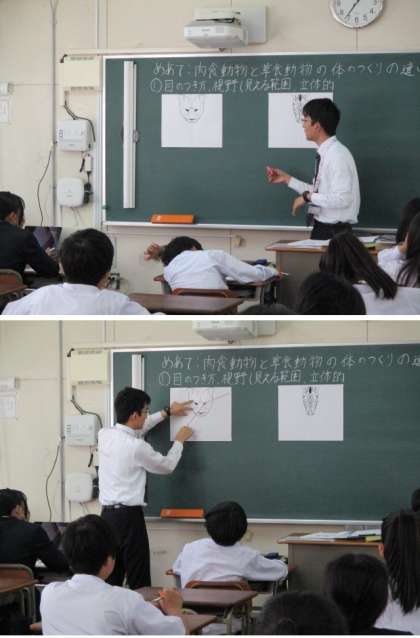 めあて：肉食動物と草食動物の体のつくりの違い
①目のつき方、視野(見える範囲 立体的
めあて：肉食動物と草食動物の体のつくりの違
①目のつき方、視野(見える範囲 立体的